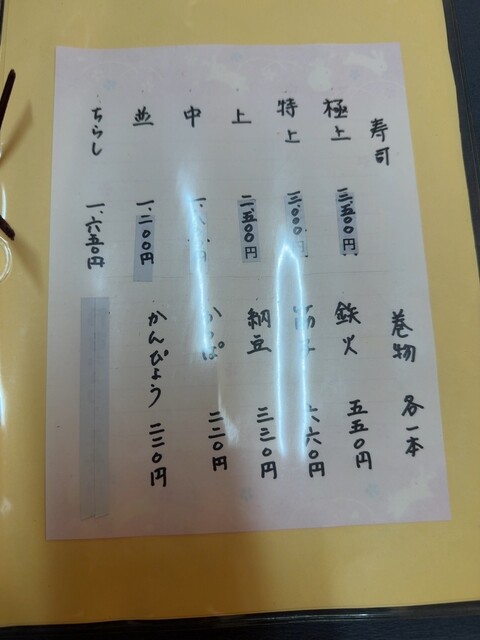 寿司
極上 三、五〇〇円
特上 三、〇〇〇円
上 二、五〇〇円
中
並 一、二〇〇円
ちらし 一、六五〇円
巻物 各一本
鉄火 五五〇円
筋子 六六〇円
納豆 三三〇円
かっぱ 二二〇円
かんぴょう 二二〇円